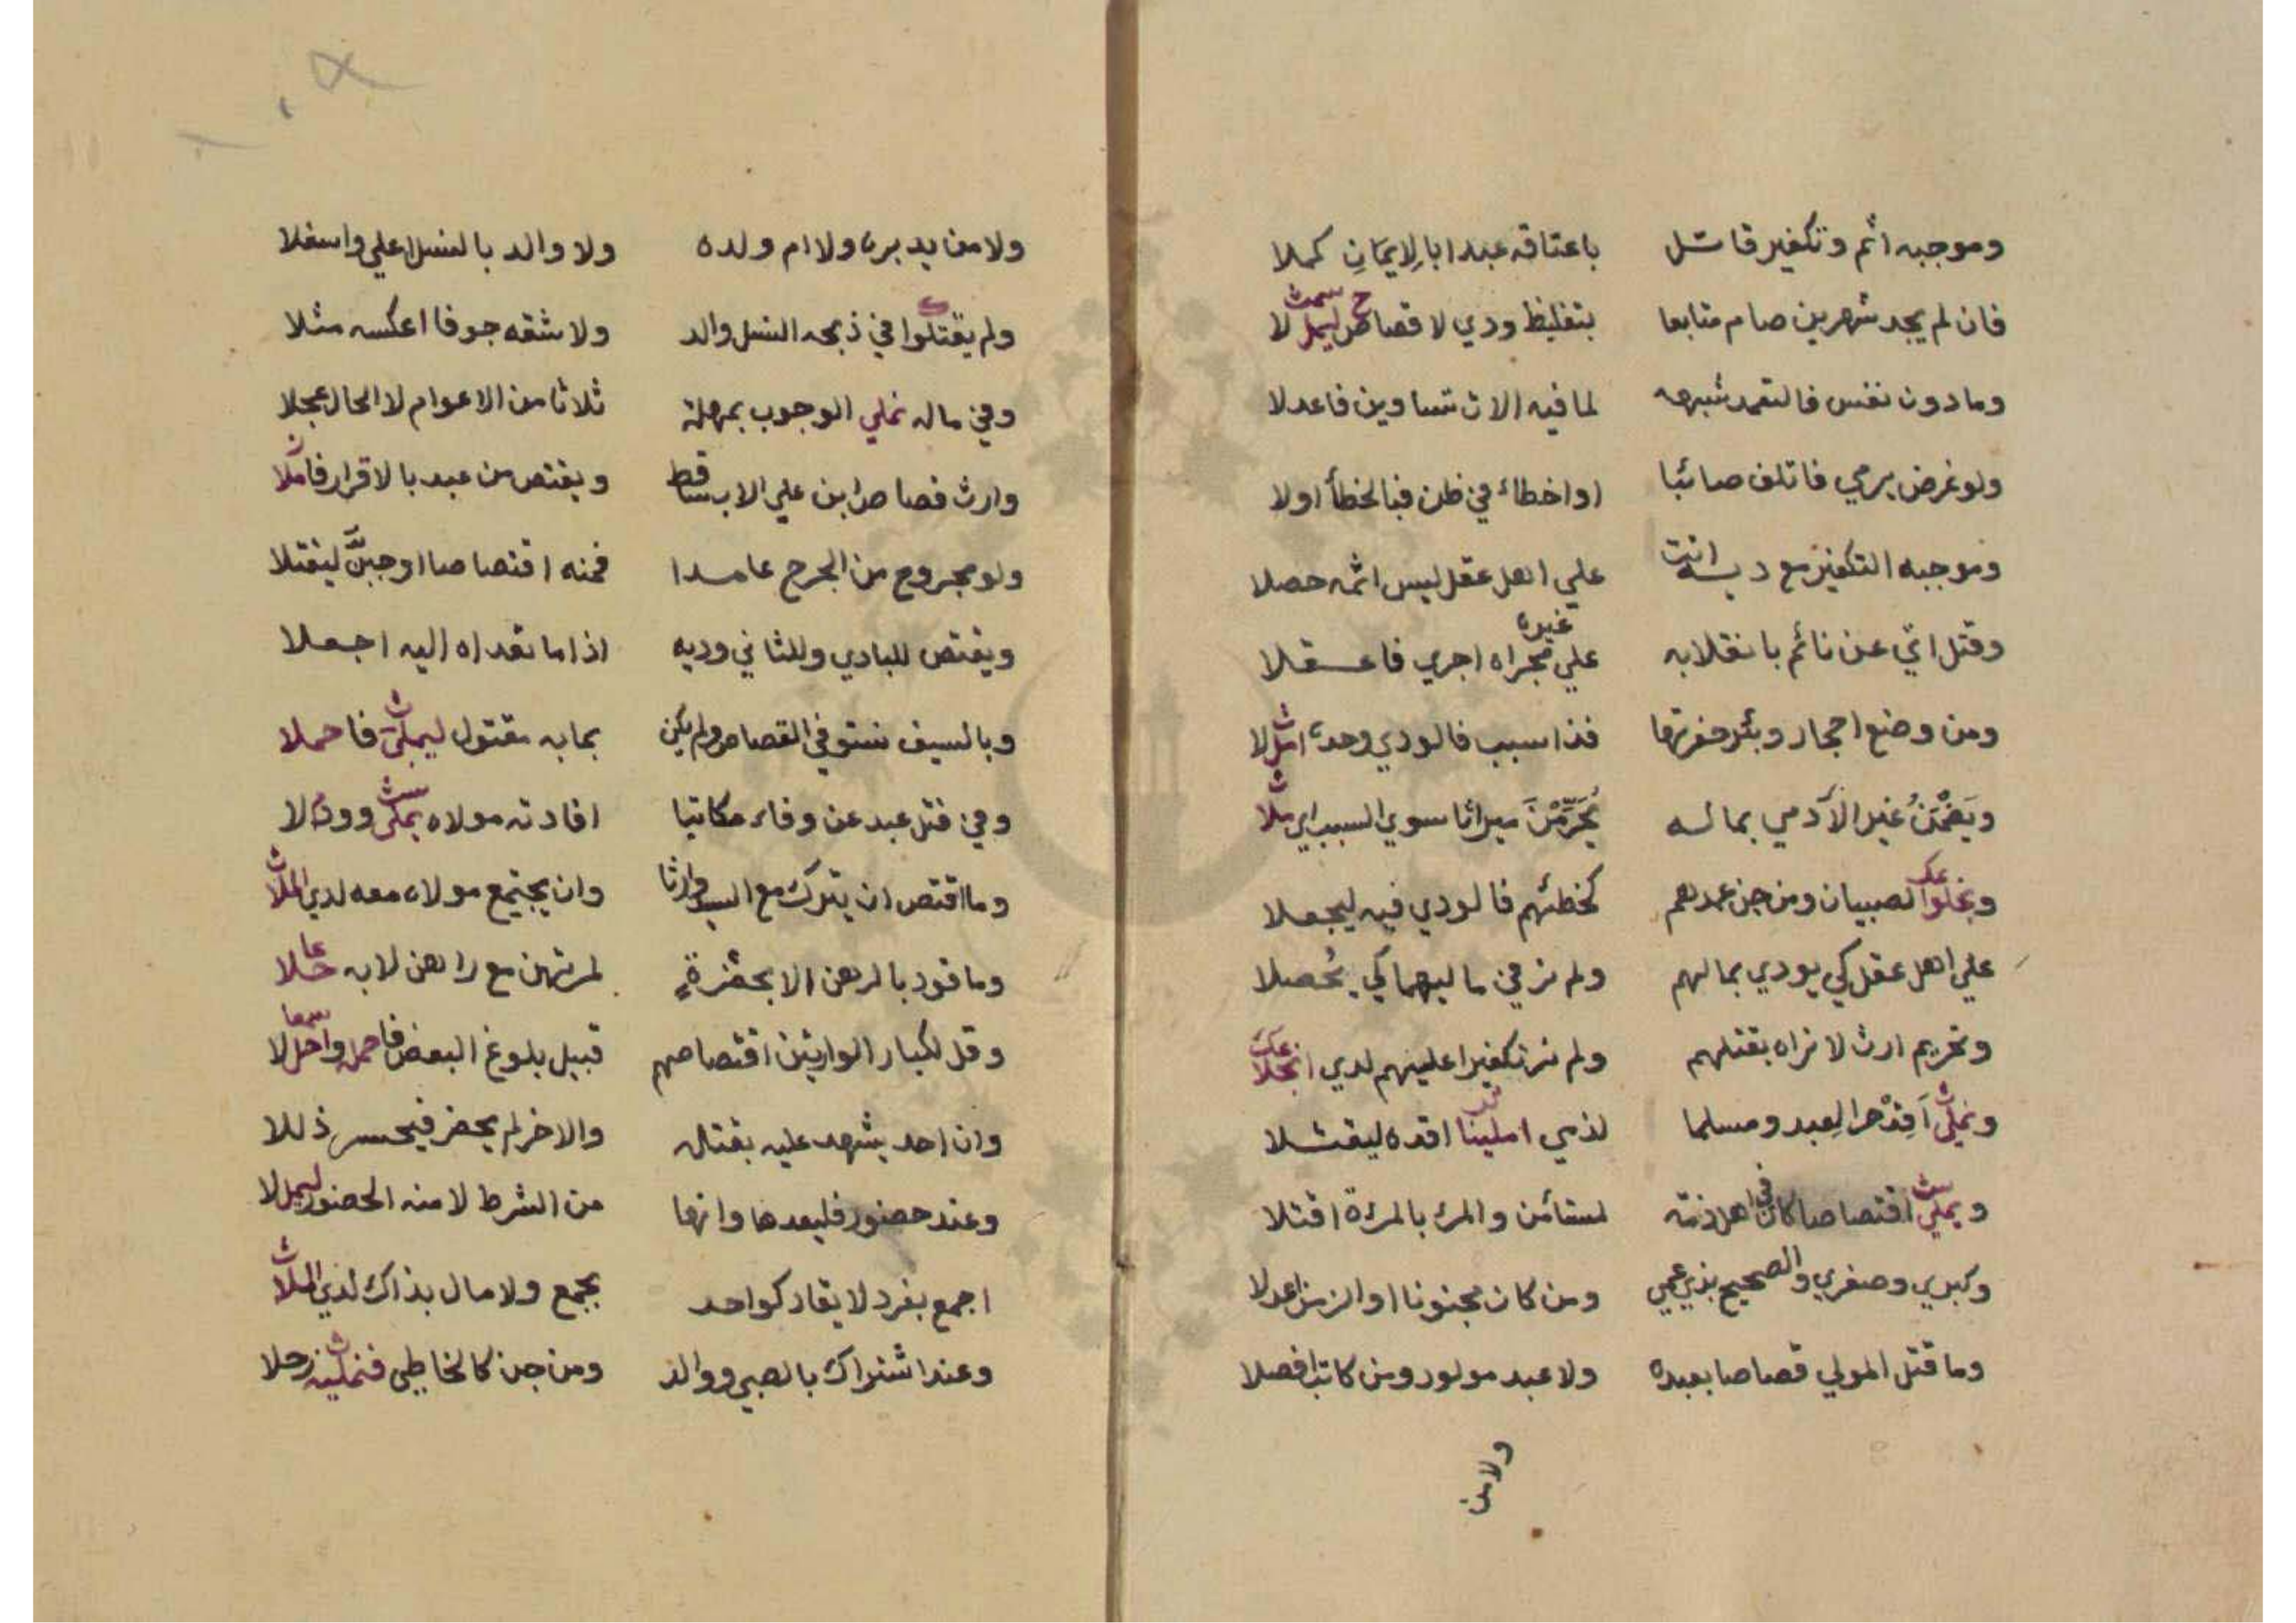 وموجبه اثم وتكفير قاتل باعتاقه عبدا بالايمان كملا
فان لم يجد شهرين صام متابعا بتغليظ ودي لا قصاص ليملا
وما دون نفس فالتعمد شبهه لما فيه الات تساوين فاعدلا
ولو غرض يرمي فاتلف صائبا او اخطاء في ظن فبالخطأ اولا
وموجبه التكفير مع دية انت علي اهل عقل ليس اثمه حصلا
وقتل اتي عن نائم بانقلابه علي غيره مجراه اجري فاعقلا
ومن وضع احجار وبئر حفرتها فذا سبب فالودي وحده املا
ويضمن غير الآدمي بماله يحرمن ميراثا سوي السبب اي ملا
ونجلوا الصبيان ومن جن عمدهم كخطئهم فالودي فيه ليجعلا
علي اهل عقل كي يودي بمالهم ولم نر في ماليهما كي يحصلا
وتحريم ارث لا نراه بقتلهم ولم نر تكفيرا عليهم لدي انجلا
ونملي اقد حرا لعبد ومسلما لذمي املينا اقده ليقتلا
ويملي اقتصاصا كان في اهل ذمة لمستأمن والمرء بالمرءة اقتلا
وكبري وصغري والصحيح بذي عمي ومن كان مجنونا او الزمن اعدلا
وما قتل المولي قصاصا بعبده ولا عبد مولود ومن كاتب افصلا
ولامن
ولا من يدبره ولا ام ولده ولا والد بالنسل اعلي واسفلا
ولم يقتلوا في ذبحه النسل والد ولا شقه جوفا اعكسه مثلا
وفي ماله نملي الوجوب بمهلة ثلاثا من الاعوام لا الحال عجلا
وارث قصاص ابن علي الاب ساقط ويقتص من عبد بالاقرار فاملا
ولو مجروح من الجرح عامدا فمنه اقتصاصا اوجبن ليقتلا
ويقتص للبادي وللثاني وديه اذا ما تعداه اليه اجعلا
وبالسيف نستوفي القصاص ولم يكن بما به مقتول ليملي فاحملا
وفي قتل عبد عن وفاء مكاتبا افادته مولاه يملي وودلا
وما اقتص ان يترك مع السيد وارثا وان يجتمع مولاه معه لدي الملا
وما قود بالرهن الا بحضرة لمرتهن مع راهن لابه حلا
وقل لكبار الوارثين اقتصاصهم قبيل بلوغ البعض فاحمل واحللا
وان احد يشهد عليه بقتاله والاخر لم يحضر فيحسر ذللا
وعند حضور فليعدها وانها من الشرط لا منه الحضور ليملا
اجمع بفرد لا يقاد كواحد بجمع ولا مال بذاك لدي الملا
وعند اشتراك بالصبي ووالد ومن جن كالخاطي فنملينه زحلا